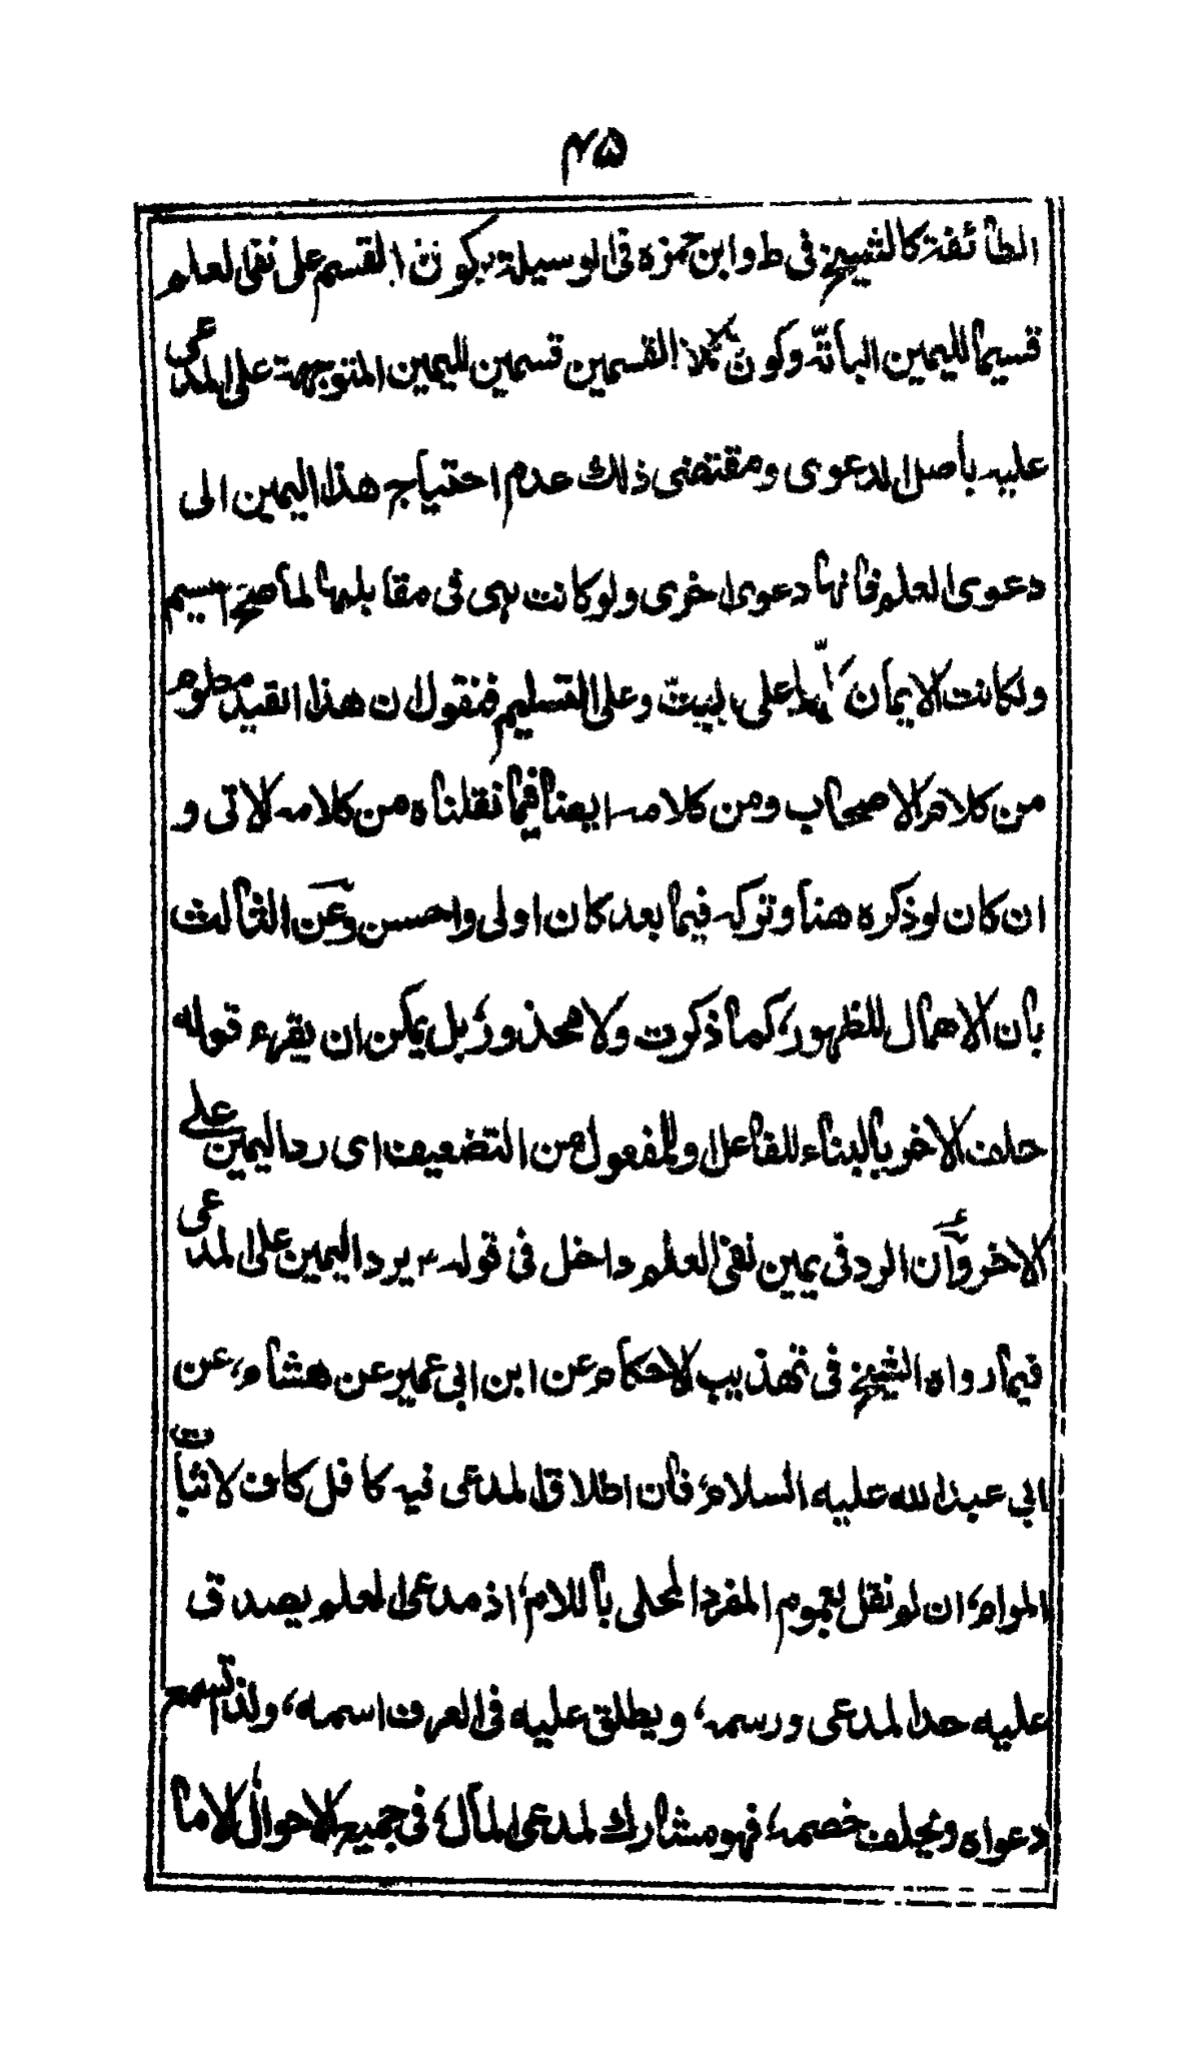 ۴۵
الطائفة كالشيخ في ط وابن حمزه في الوسيلة بكون القسم على نفي العلم
قسيما لليمين الباتة وكون كلا القسمين قسمين لليمين المتوجهة على المدعى
عليه بأصل الدعوى ومقتضى ذلك عدم احتياج هذا اليمين الى
دعوى العلم فانها دعوى اخرى ولو كانت هى في مقابلها لما صح
ولكانت الايمان كلها على البت وعلى التسليم فنقول ان هذا القيد معلوم
من كلام الاصحاب ومن كلامه ايضا فيما نقلناه من كلامه الاتى و
ان كان لو ذكره هنا وتركه فيما بعد كان اولى واحسن وعن الثالث
بان الاهمال للظهور، كما ذكرت ولا محذور، بل يمكن ان يقرء قوله
حلف الاخر بالبناء للفاعل او للمفعول من التضعيف اى رد اليمين على
الاخر وان الرد في يمين نفى العلم داخل في قوله يرد اليمين على المدعى
فيما رواه الشيخ في تهذيب الاحكام عن ابن ابى عمير عن هشام، عن
ابي عبد الله عليه السلام، فان اطلاق المدعى فيه كافل كاف لاثبات
المرام، ان لم نقل بعموم المفرد المحلى باللام، اذ مدعى العلم يصدق
عليه حد المدعى ورسمه، ويطلق عليه في العرف اسمه، ولذا تسمع
دعواه ويحلف خصمه، فهو مشارك لمدعى المال، في جميع الاحوال الا ما